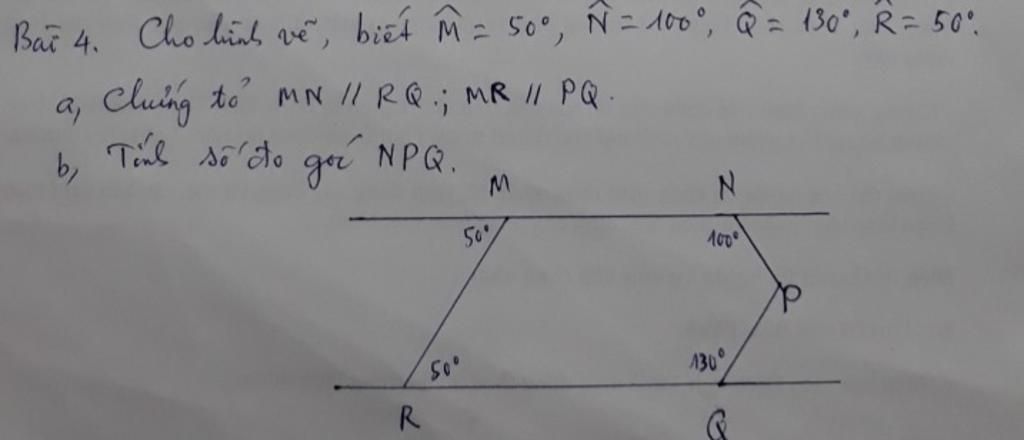 Bài 4. Cho hình vẽ, biết M̂ = 50°, N̂ = 100°, Q̂ = 130°, R̂ = 50°.
a, Chứng tỏ MN // RQ.; MR // PQ.
b, Tính số đo góc NPQ.
M N
50° 100°
P
50° 130°
R Q